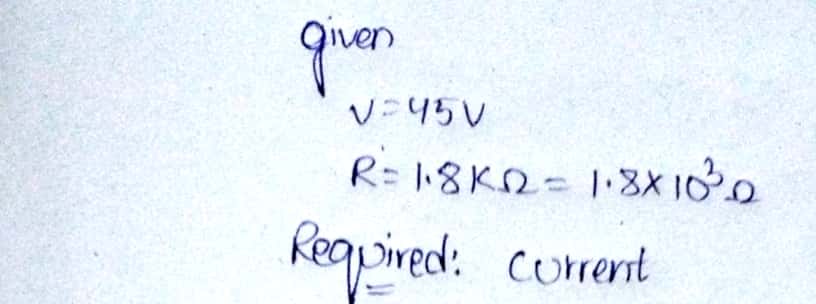 given
V=45V
R=1.8KΩ=1.8x10³Ω
Required: Current